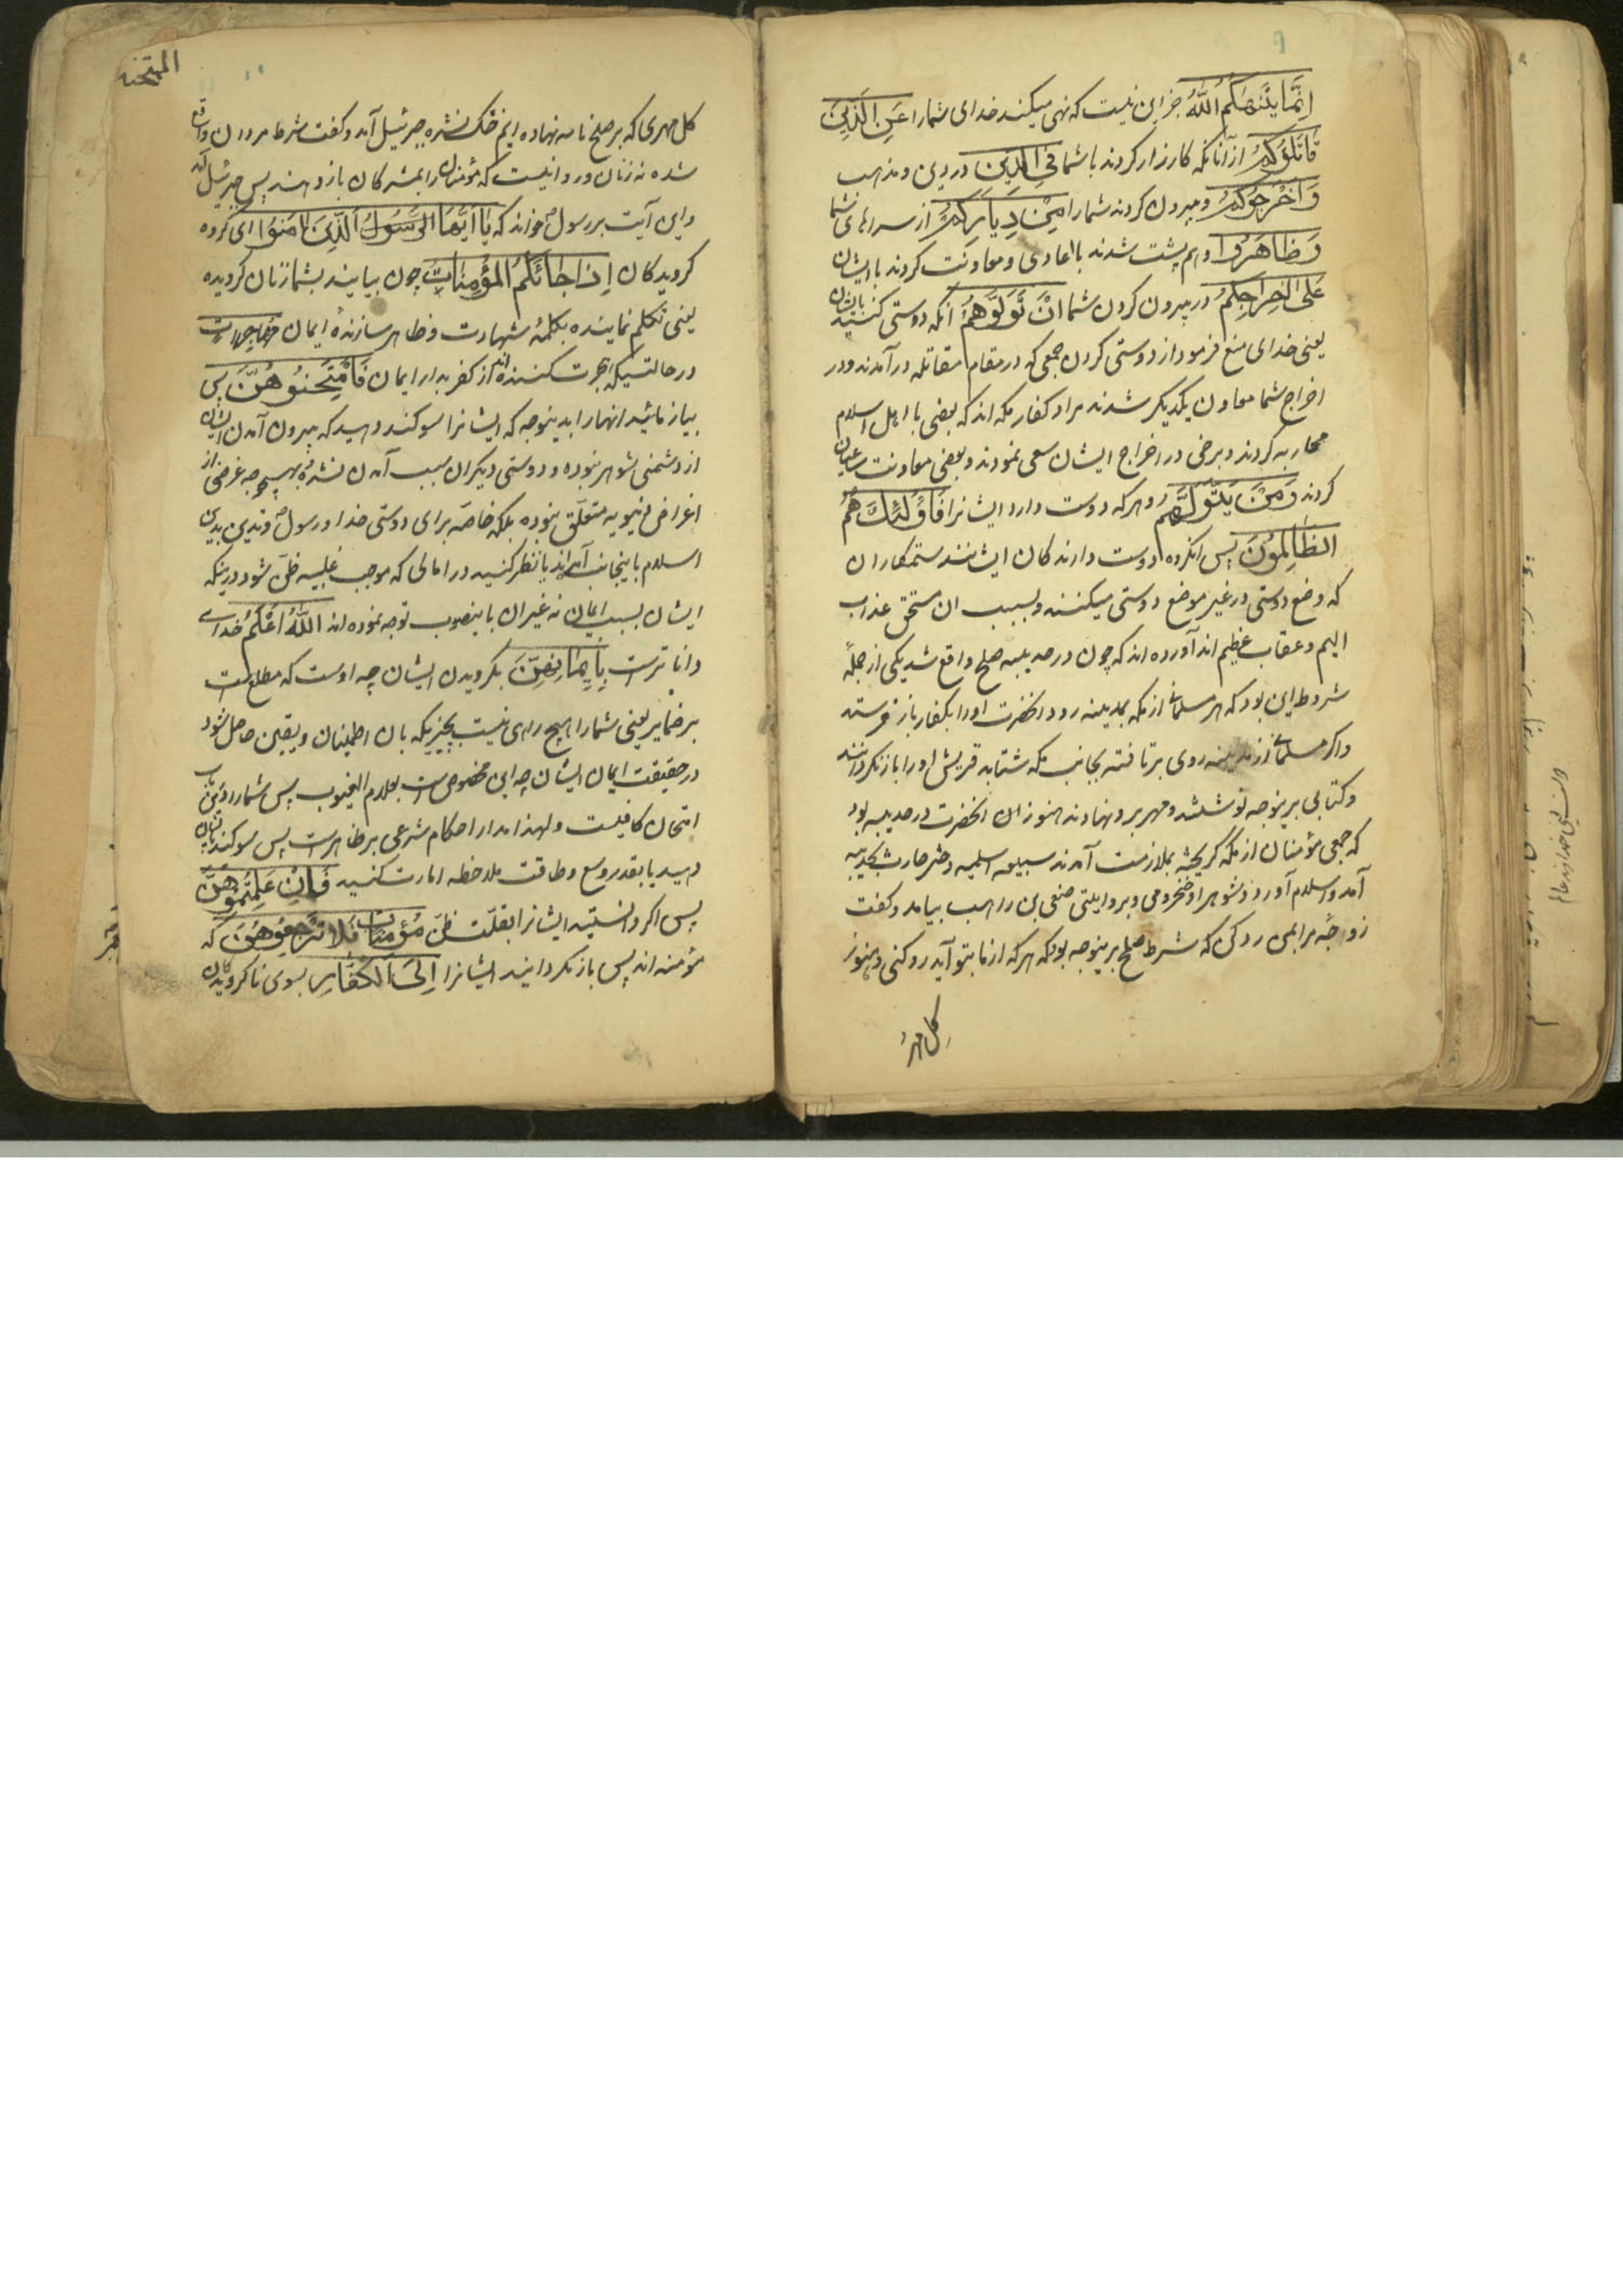 اِنَّمَا یَنْهٰیکُمُ اللّٰهُ جز این نیست که نهی میکند خدای شما را عَنِ الَّذِیْنَ
قَاتَلُوْکُمْ از آنانکه کارزار کردند با شما فِی الدِّیْنِ در دین و مذهب
وَ اَخْرَجُوْکُمْ و بیرون کردند شما را مِنْ دِیَارِکُمْ از سراهای شما
وَ ظَاهَرُوْا و هم پشت شدند با اعادی و معاونت کردند با ایشان
عَلٰی اِخْرَاجِکُمْ در بیرون کردن شما اَنْ تَوَلَّوْهُمْ آنکه دوستی کنید بایشان
یعنی خدای منع فرمود از دوستی کردن جمعی که در مقام مقاتله در آمدند و در
اخراج شما معاون یکدیگر شدند مراد کفار مکه اند که بعضی با اهل اسلام
محاربه کردند و برخی در اخراج ایشان سعی نمودند و بعضی معاونت ساعیان
کردند وَ مَنْ یَتَوَلَّهُمْ و هر که دوست دارد ایشانرا فَاُولٰئِکَ هُمُ
الظَّالِمُوْنَ پس آنگروه دوست دارندگان ایشانند ستمکاران
که وضع دوستی در غیر موضع دوستی میکنند و بسبب ان مستحق عذاب
الیم و عقاب عظیم اند آورده اند که چون در حدیبیه صلح واقع شد یکی از جملهٔ
شروط این بود که هر مسلمانی از مکه بمدینه رود آنحضرت او را بکفار باز فرستد
و اگر مسلمانی از مدینه روی برتافته بجانب مکه شتابد قریش او را باز نگردانند
و کتابی برینوجه نوشتند و مهر برو نهادند هنوز ان آنحضرت در حدیبیه بود
که جمعی مؤمنان از مکه گریخته بملازمت آمدند سبیعه اسلمیه دختر حارث بحدیبیه
آمد و اسلام آورد و شوهر او مخزومی و بروایتی صیفی بن راهب بیامد و گفت
زوجهٔ مرا بمن رد کن که شرط صلح برینوجه بود که هر که از ما بتو آید رد کنی و هنوز
کل مهر
الممتحنه
کل مهری که بر صلح نامه نهاده ایم خشک نشده جبرئیل آمد و گفت شرط مردان واقع
شده نه زنان و روا نیست که مؤمنان را بمشرکان باز دهند پس جبرئیل آمد
و این آیت بر رسول خواند که یَا اَیُّهَا الرَّسُوْلُ الَّذِیْنَ اٰمَنُوْا ای گروه
گرویدگان اِذَا جَائَکُمُ الْمُؤْمِنَاتُ چون بیایند بشما زنان گرویده
یعنی تکلم نماینده بکلمهٔ شهادت و ظاهر سازندهٔ ایمان مُهَاجِرَاتٍ
در حالتیکه هجرت کننده اند از کفر بدار ایمان فَامْتَحِنُوْهُنَّ پس
بیازمائید انها را بدینوجه که ایشانرا سوگند دهید که بیرون آمدن ایشان
از دشمنی شوهر نبوده و دوستی دیگران سبب آمدن نشده و بهیچوجه غرضی از
اغراض دنیویه متعلق نبوده بلکه خاصه برای دوستی خدا و رسول و تدین بدین
اسلام باینجانب آمده اند یا نظر کنید در اماراتی که موجب غلبه ظن شود در اینکه
ایشان بسبب ایمان نه غیر ان باینصوب توجه نموده اند اَللّٰهُ اَعْلَمُ خدای
داناترست بِاِیْمَانِهِنَّ بگرویدن ایشان چه اوست که مطلع است
بر ضمایر یعنی شما را هیچ راهی نیست بچیزیکه بان اطمینان و یقین حاصل شود
در حقیقت ایمان ایشان چه این مخصوص است بعلام الغیوب پس شما را درین باب
امتحان کافیست و لهذا مدار احکام شرعی بر ظاهر است پس سوگند بایشان
دهید یا بقدر وسع و طاقت ملاحظه امارت کنید فَاِنْ عَلِمْتُمُوْهُنَّ
پس اگر دانستید ایشانرا بغلبت ظن مُؤْمِنَاتٍ فَلَا تَرْجِعُوْهُنَّ که
مؤمنه اند پس باز نگردانید ایشانرا اِلَی الْکُفَّارِ بسوی ناگرویدگان